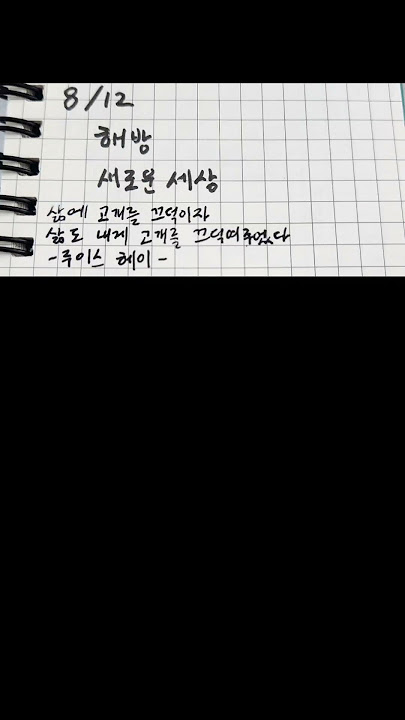 8/12
해방
새로운 세상
삶에 고개를 끄덕이자
삶도 내게 고개를 끄덕여주었다
-루이스 헤이-